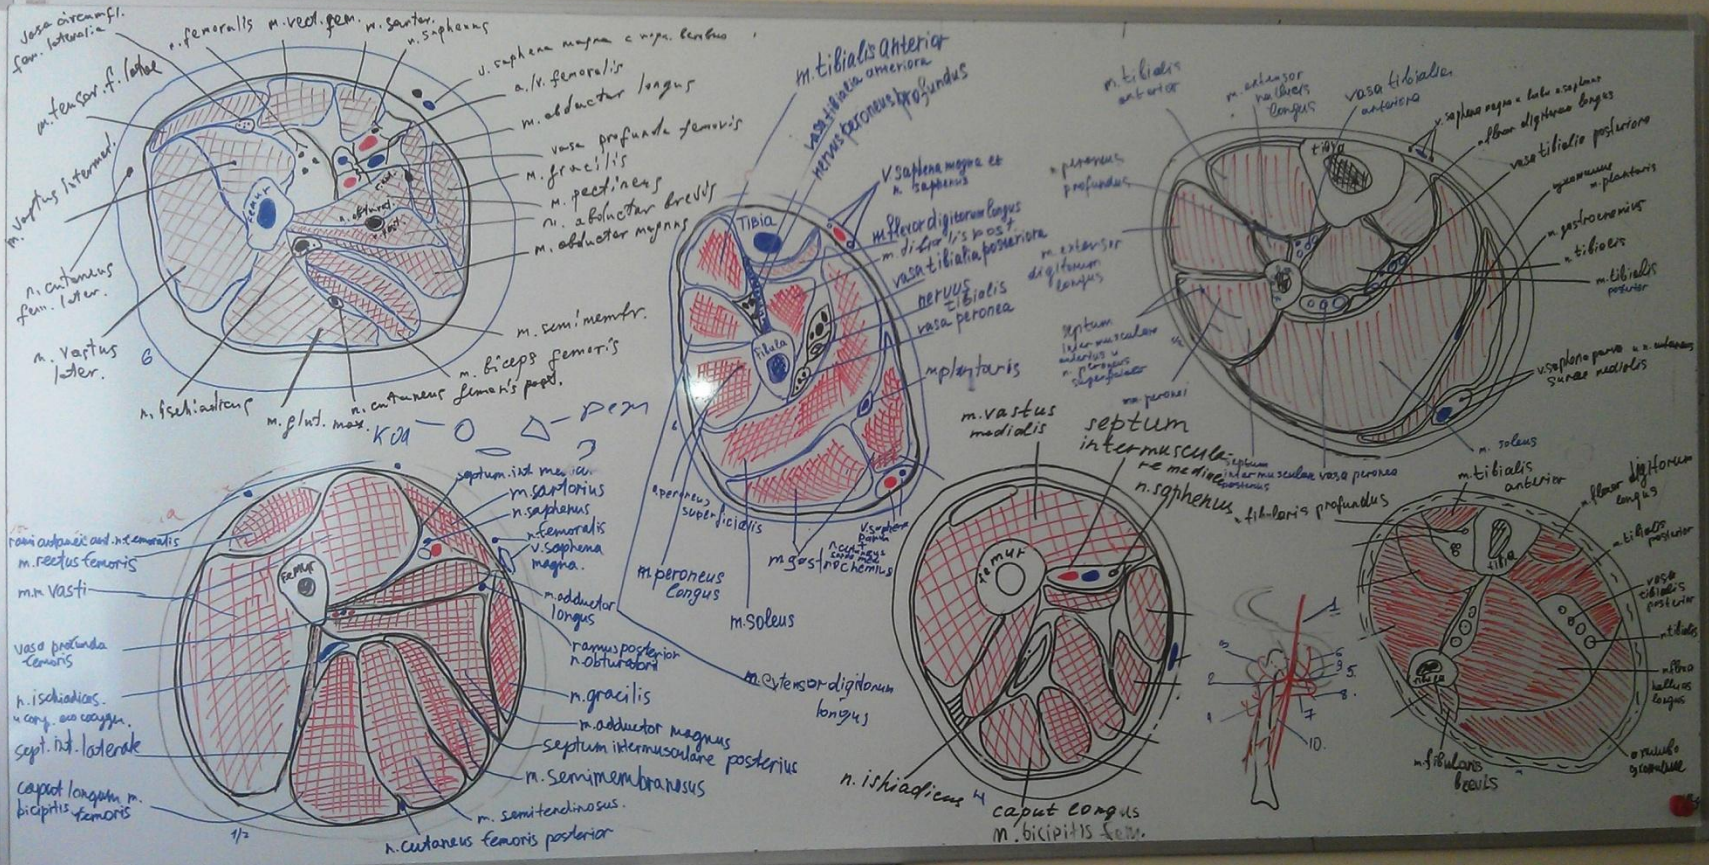 vasa circumfl.
fem. lateralia
n. femoralis
m. rect. fem.
m. sartor.
n. saphenus
v. saphena magna c
a./v. femoralis
m. abductor longus
vasa profunda femoris
m. gracilis
m. pectineus
m. abductor brevis
m. abductor magnus
m. semimembr.
m. biceps femoris
n. cutaneus femoris post.
m. glut. max.
n. ischiadicus
m. vastus
later.
n. cutaneus
fem. later.
m. vastus intermed.
m. tensor. f. latae
femur
n. obturat.
6
m. tibialis anterior
vasa tibialia anteriora
nervus peroneus profundus
v. saphena magna et
n. saphenus
m. flexor digitorum longus
m. tibialis post.
vasa tibialia posteriora
nervus
tibialis
vasa peronea
m. plantaris
Tibia
Fibula
n. peroneus
superficialis
m. peroneus
longus
m. soleus
m. gastrochemius
v. saphena
parva
m. extensor digitorum
longus
m. tibialis
anterior
m. extensor
hallucis
longus
vasa tibialia
anteriora
m. flexor digitorum longus
vasa tibialia posteriora
m. plantaris
m. gastrocnemius
n. tibialis
m. tibialis
posterior
v. saphena parva и n. cutaneus
surae medialis
m. soleus
vasa peronea
septum
intermusculare
posterius
n. peroneus
profundus
m. extensor
digitorum
longus
septum
intermusculare
anterius и
n. peroneus
superficialis
mm. peronei
tibia
septum. int. med.
m. sartorius
n. saphenus
femoralis
v. saphena
magna.
m. adductor
longus
ramus posterior
n. obturatorii
n. gracilis
m. adductor magnus
septum intermusculare posterius
m. semimembranosus
m. semitendinosus.
n. cutaneus femoris posterior
rami cutanei ant. n. femoralis
m. rectus femoris
m.m vasti
vasa profunda
femoris
n. ischiadicus.
sept. int. laterale
caput longum m.
bicipitis femoris
1/2
Femur
m. vastus
medialis
septum
intermuscula-
re mediale
n. saphenus
femur
n. ishiadicus
caput longus
m. bicipitis fem.
1
2
3
5.
6
7
8.
9
10.
n. fibularis profundus
m. tibialis
anterior
m. flexor digitorum
longus
m. tibialis
posterior
vasa
tibialis
posterior
n. tibialis
m. flexor
hallucis
longus
m. fibularis
brevis
tibia
fibula